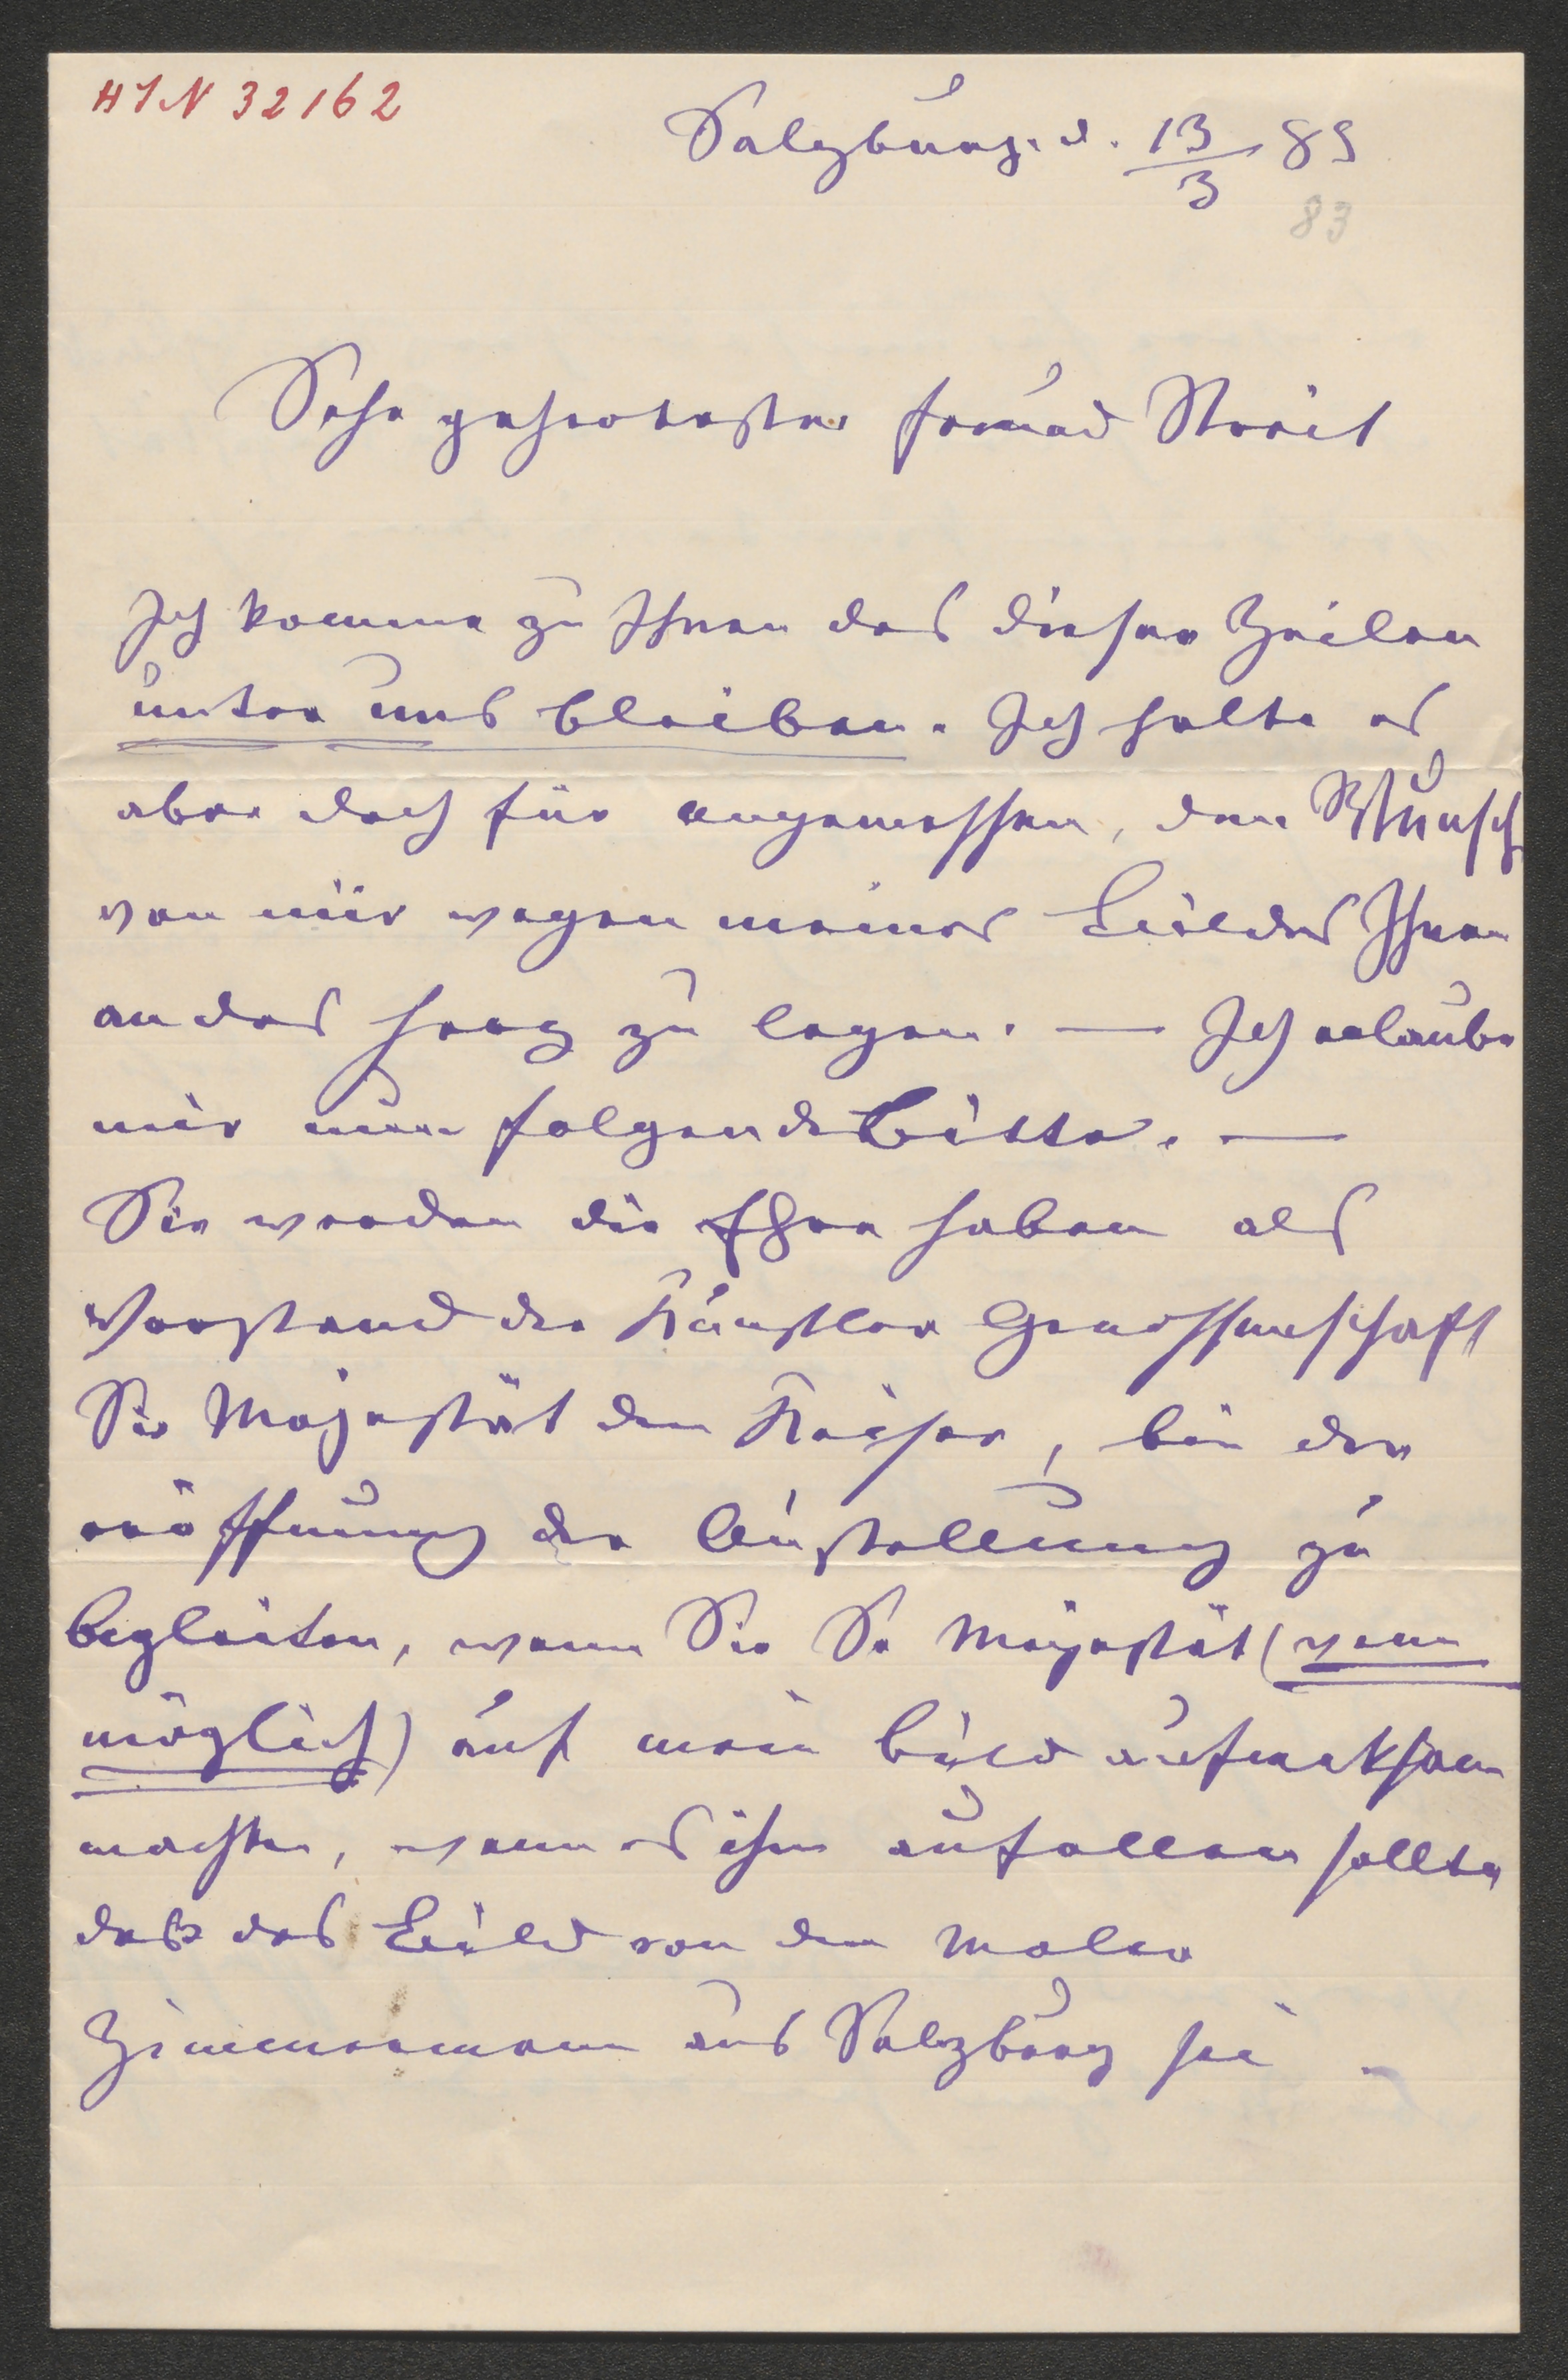 HIN 32162
Salzburg. d. 13/3 83
83
Sehr geehrtester Freund Streit
Ich komme zu Ihnen das dieser Zeilen
unter uns bleiben. Ich halte es
aber doch für angemessen, den Wunsch
von mir wegen meines Bildes Ihnen
an das Herz zu legen. — Ich erlaube
mir nun folgende Bitte. —
Sie werden die Ehre haben als
Vorstand der Künstler Genossenschaft
Sr Majestät den Kaiser, bei der
eröffnung der Austellung zu
begleiten, wenn Sie Se Majestät (wenn
möglich) auf mein Bild aufmerksam
machten, wenn es ihm aufallen sollte,
daß das Bild von dem Maler
Zimmermann aus Salzburg sei